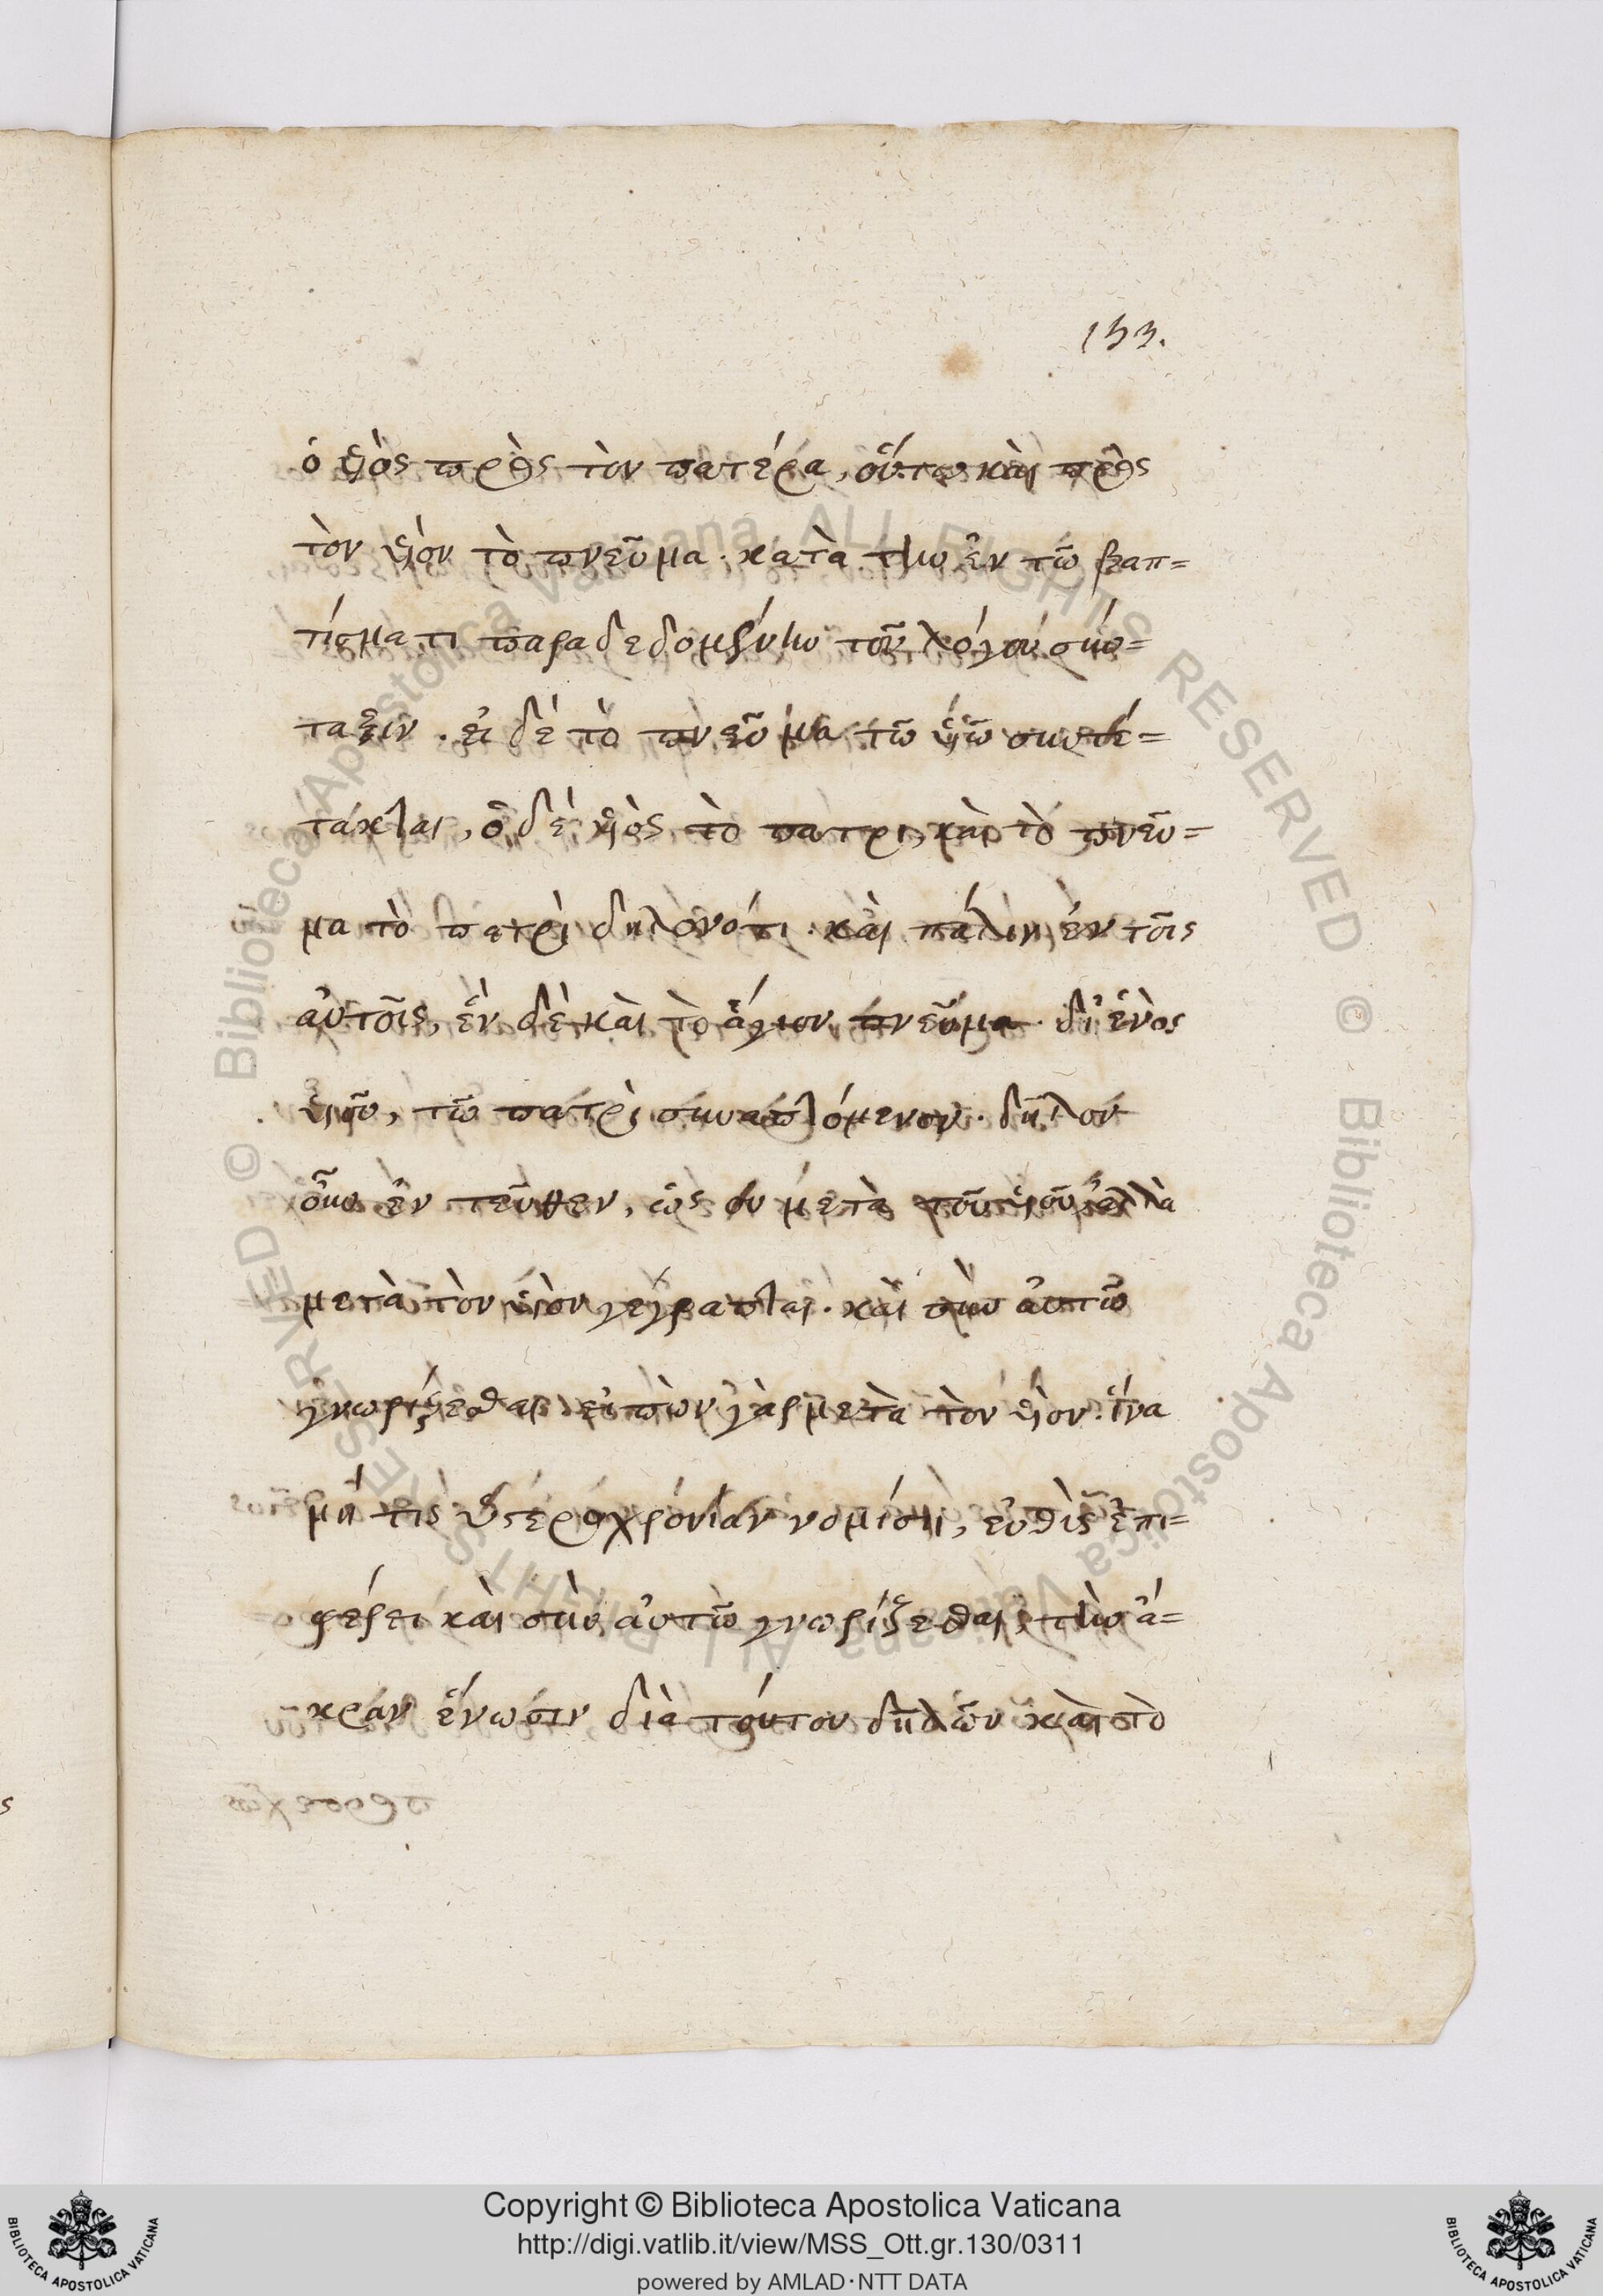 153.
ὁ υἱὸς πρὸς τὸν πατέρα, οὕτω καὶ πρὸς
τὸν υἱὸν τὸ πνεῦμα. κατὰ τὴν ἐν τῶ βαπ=
τίσματι παραδεδομένην τοῦ λόγου σύν=
ταξιν. εἰ δὲ τὸ πνεῦμα τῶ υἱῶ συντέ=
τακται, ὁ δὲ υἱὸς τὸ πατρι, καὶ τὸ πνεῦ=
μα τὸ πατρὶ δηλονότι. καὶ πάλιν ἐν τοῖς
αὐτοῖς, ἓν δὲ καὶ τὸ ἅγιον πνεῦμα. δι' ἑνὸς
υἱοῦ, τῶ πατρὶ συναπτόμενον. δῆλον
οὖν ἐν τεῦθεν, ὡς οὐ μετὰ τοῦ υἱοῦ ἀλλὰ
μετὰ τὸν υἱὸν γέγραπται. καὶ σὺν αὐτῶ
γνωρίζεσθαι εἰπὼν γὰρ μετὰ τὸν υἱὸν. ἵνα
μή τις ὑστεροχρόνιαν νομίση, εὐθὺς ἐπι=
φέρει καὶ σὺν αὐτῶ γνωρίζεσθαι, τὴν ἄ=
κραν ἕνωσιν διὰ τούτου δηλῶν καὶ τὸ
Copyright © Biblioteca Apostolica Vaticana
http://digi.vatlib.it/view/MSS_Ott.gr.130/0311
powered by AMLAD·NTT DATA
BIBLIOTECA APOSTOLICA VATICANA
BIBLIOTECA APOSTOLICA VATICANA
© Biblioteca Apostolica Vaticana, ALL RIGHTS RESERVED
© Biblioteca Apostolica Vaticana ALL RIGHTS RESERVED